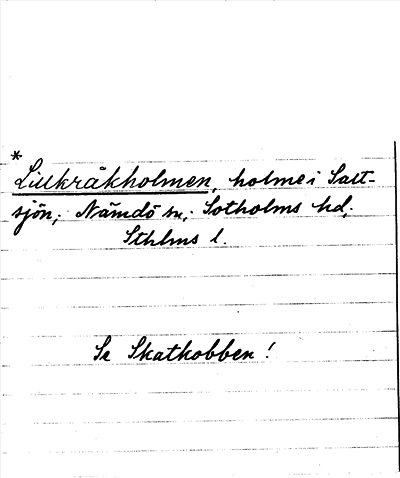 *
Lillkråkholmen, holme i Salt-
sjön; Nämdö sn; Sotholms hd;
Sthlms l.
Se Skatkobben!